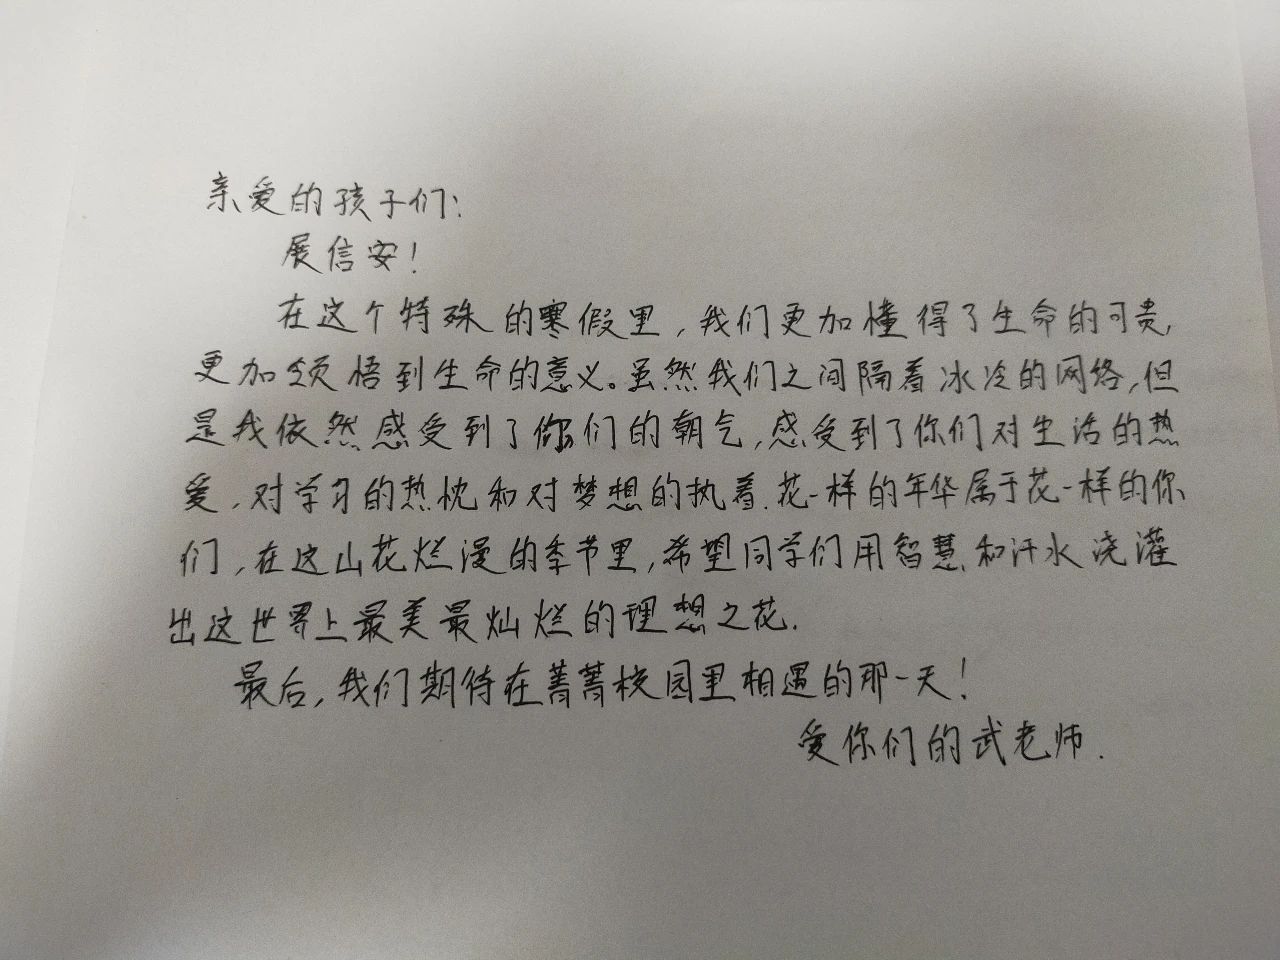 亲爱的孩子们:
展信安!
在这个特殊的寒假里,我们更加懂得了生命的可贵,
更加领悟到生命的意义。虽然我们之间隔着冰冷的网络,但
是我依然感受到了你们的朝气,感受到了你们对生活的热
爱,对学习的热忱和对梦想的执着.花一样的年华属于花一样的你
们,在这山花烂漫的季节里,希望同学们用智慧和汗水浇灌
出这世界上最美最灿烂的理想之花.
最后,我们期待在菁菁校园里相遇的那一天!
爱你们的武老师.